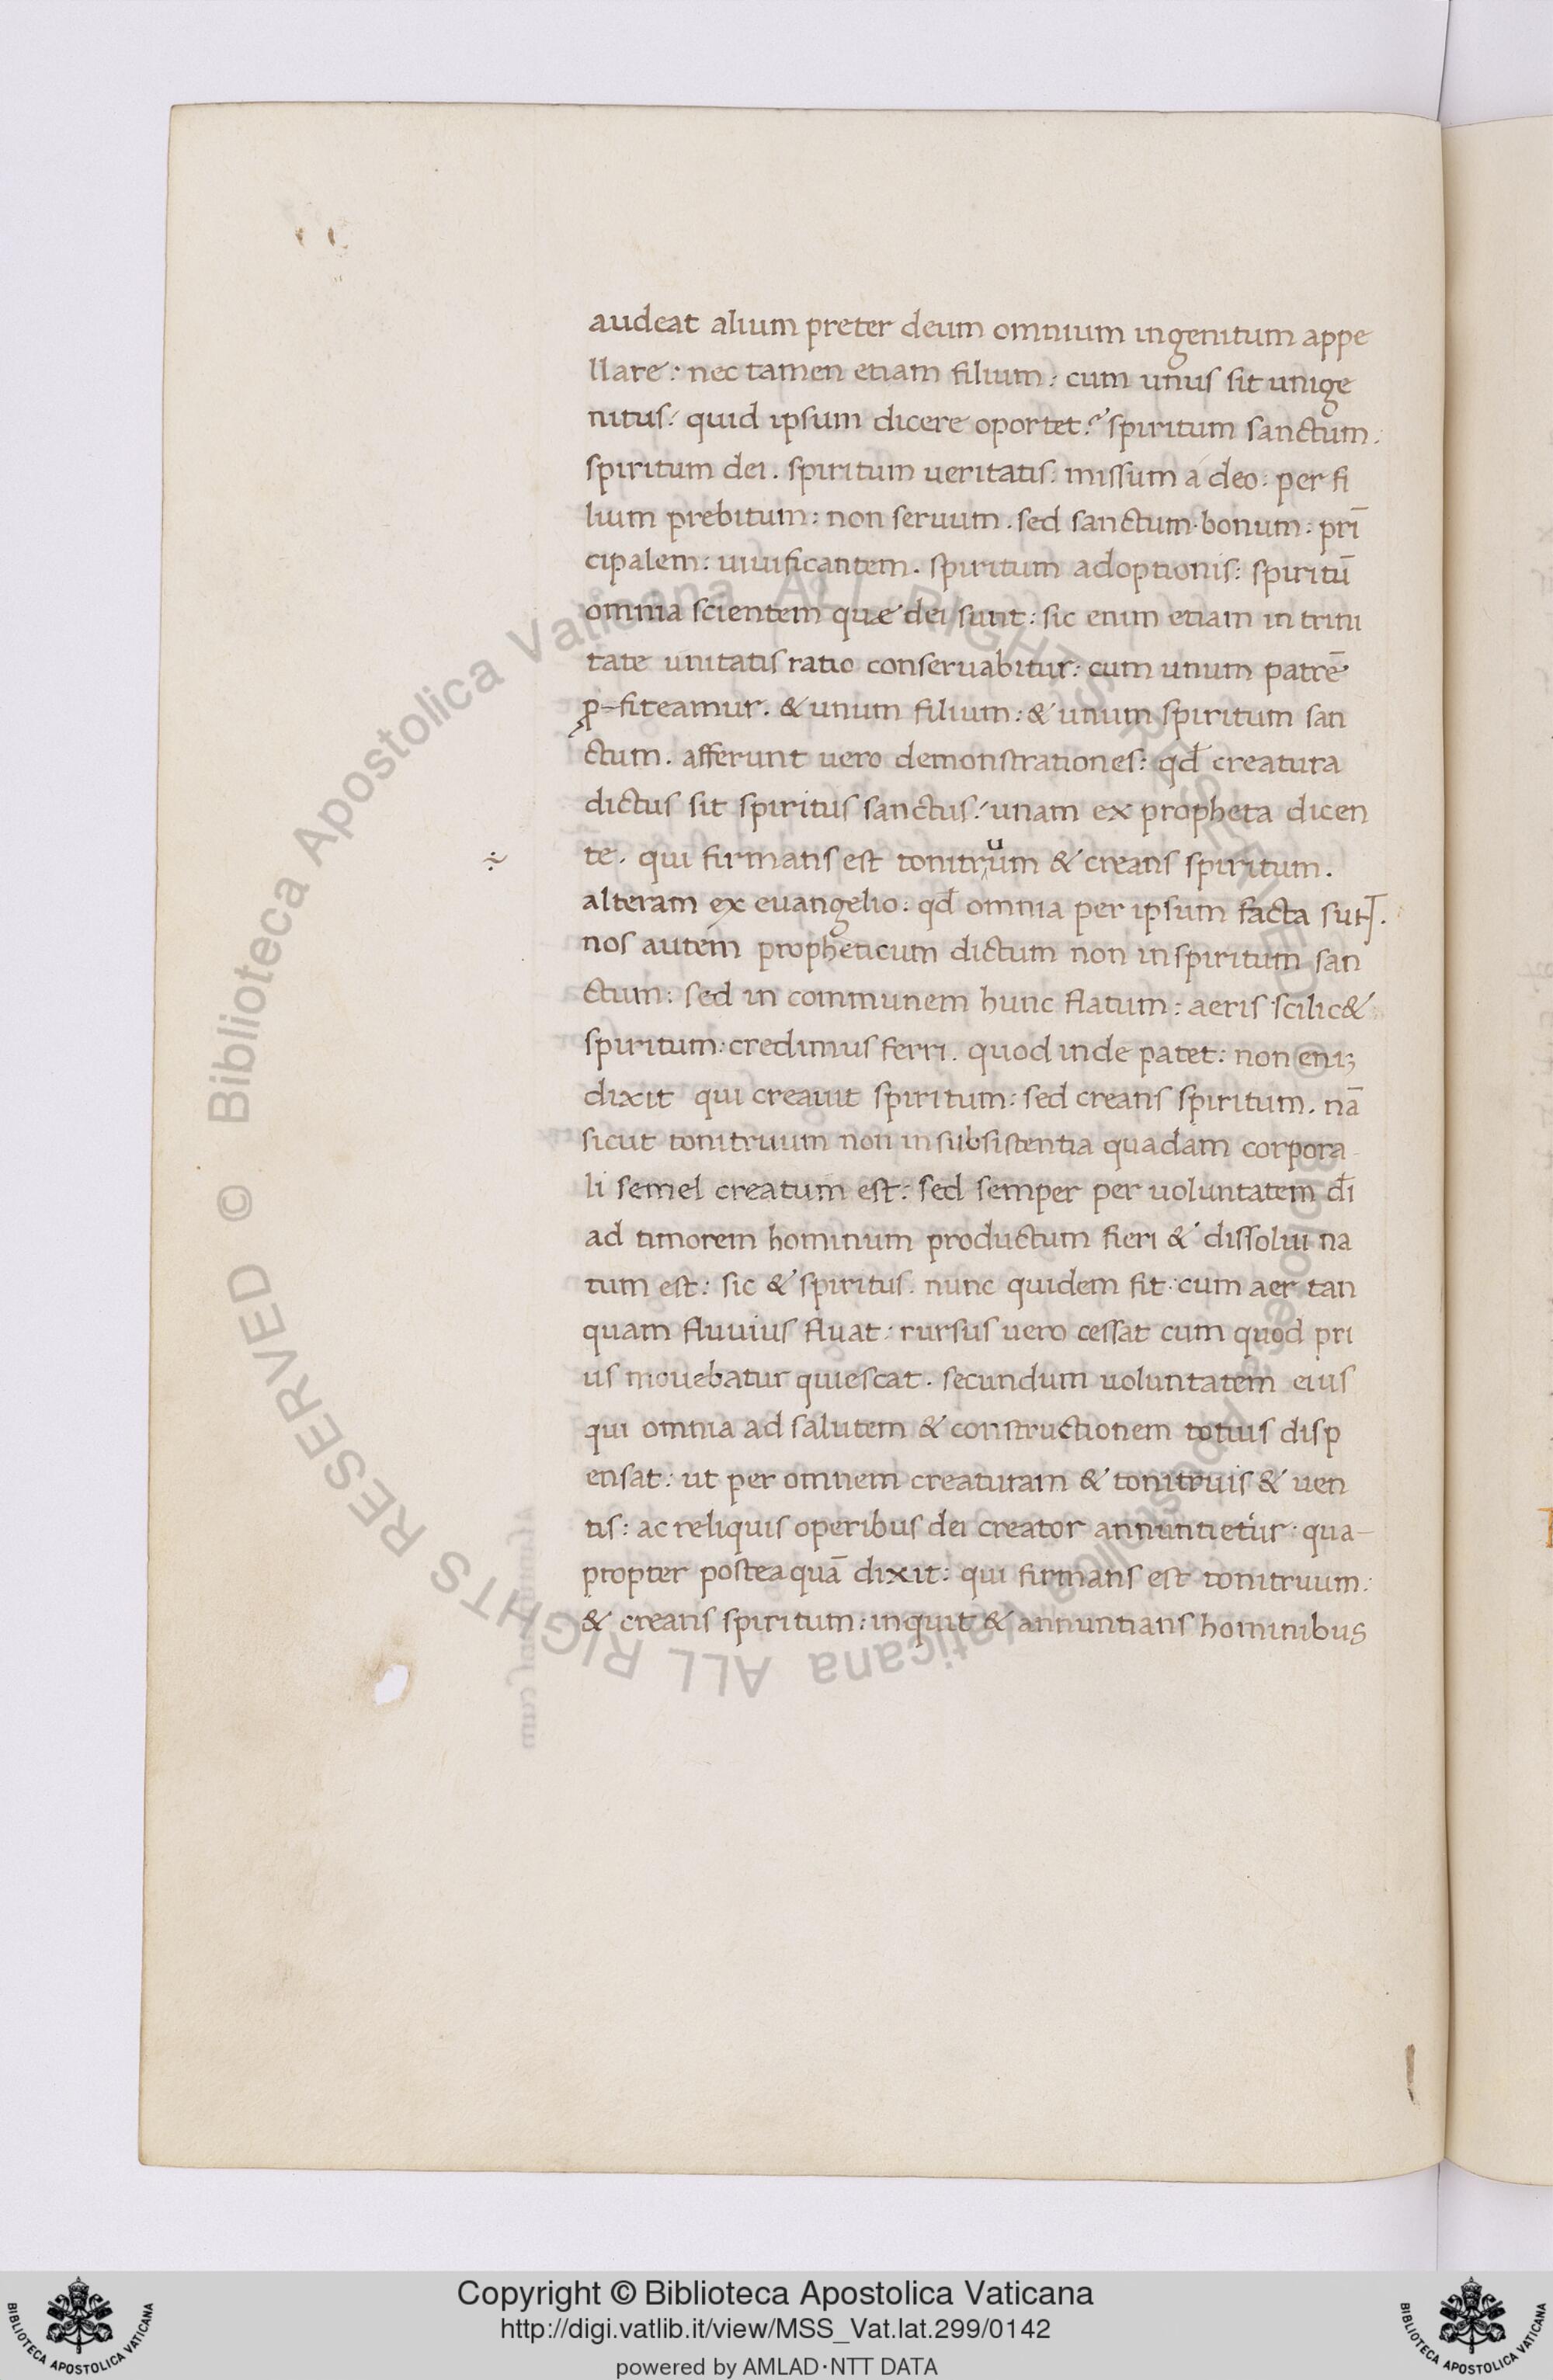 audeat alium preter deum omnium ingenitum appe
llare: nec tamen etiam filium: cum unus sit unige
nitus: quid ipsum dicere oportet? spiritum sanctum.
spiritum dei. spiritum ueritatis: missum a deo: per fi
lium prebitum: non seruum. sed sanctum. bonum: prī
cipalem: uiuificantem. spiritum adoptionis: spiritū
omnia scientem quæ dei sunt: sic enim etiam in trini
tate unitatis ratio conseruabitur: cum unum patrē
ꝓ-fiteamur. & unum filium: & unum spiritum san
ctum. afferunt uero demonstrationes: qđ creatura
dictus sit spiritus sanctus: unam ex propheta dicen
te. qui firmans est tonitruum & creans spiritum.
alteram ex euangelio: qđ omnia per ipsum facta sūt.
nos autem propheticum dictum non in spiritum san
ctum: sed in communem hunc flatum: aeris scilic&
spiritum: credimus ferri. quod inde patet: non eniꝫ
dixit qui creauit spiritum: sed creans spiritum. nā
sicut tonitruum non in subsistentia quadam corpora-
li semel creatum est: sed semper per uoluntatem dī
ad timorem hominum productum fieri & dissolui na
tum est: sic & spiritus. nunc quidem fit: cum aer tan
quam fluuius fluat: rursus uero cessat cum quod pri
us mouebatur quiescat. secundum uoluntatem eius
qui omnia ad salutem & constructionem totius disp
ensat: ut per omnem creaturam & tonitruis & uen
tis: ac reliquis operibus dei creator annuntietur: qua-
propter posteaquā dixit: qui firmans est tonitruum:
& creans spiritum: inquit & annuntians hominibus
© Biblioteca Apostolica Vaticana ALL RIGHTS RESERVED
© Biblioteca Apostolica Vaticana ALL RIGHTS RESERVED
Copyright © Biblioteca Apostolica Vaticana
http://digi.vatlib.it/view/MSS_Vat.lat.299/0142
powered by AMLAD·NTT DATA
BIBLIOTECA APOSTOLICA VATICANA
BIBLIOTECA APOSTOLICA VATICANA